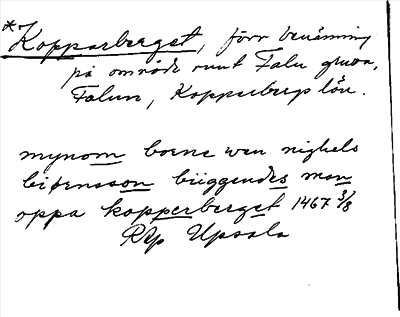 *Kopparberget, förr benämning
på område runt Falu gruva,
Falun, Kopparbergs län.
mynom borne wen nighels
beidensson büggendes man
oppa kopperberget 1467 3/8
RAp Upsala